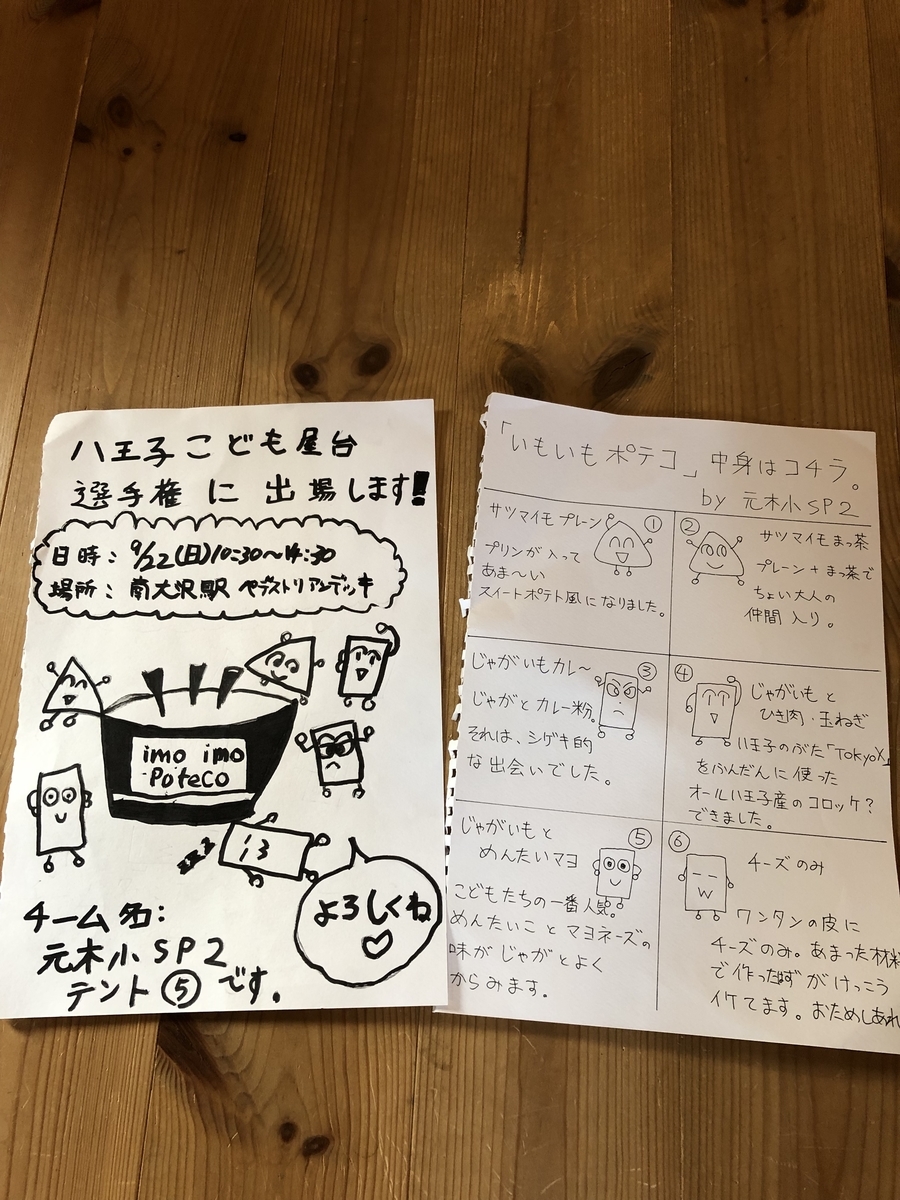 八王子こども屋台
選手権に出場します!!
日時：9/22(日)10:30〜14:30
場所：南大沢駅 ペデストリアンデッキ
imo imo
PoteCo
よろしくね
♡
チーム名：
元木小SP2
テント⑤です。
「いもいもポテコ」中身はコチラ。
by 元木小SP2
サツマイモプレーン ①
プリンが入って
あま〜い
スイートポテト風になりました。
② サツマイモまっ茶
プレーン+まっ茶で
ちょい大人の
仲間入り。
じゃがいもカレ〜 ③
じゃがとカレー粉。
それは、シゲキ的
な出会いでした。
④ じゃがいもと
ひき肉・玉ねぎ
八王子のぶた「TokyoX」
をふんだんに使った
オール八王子産のコロッケ?
できました。
じゃがいもと ⑤
めんたいマヨ
こどもたちの一番人気。
めんたいことマヨネーズの
味がじゃがとよく
からみます。
⑥ チーズのみ
ワンタンの皮に
チーズのみ。あまった材料
で作ったはずがけっこう
イケてます。おためしあれ